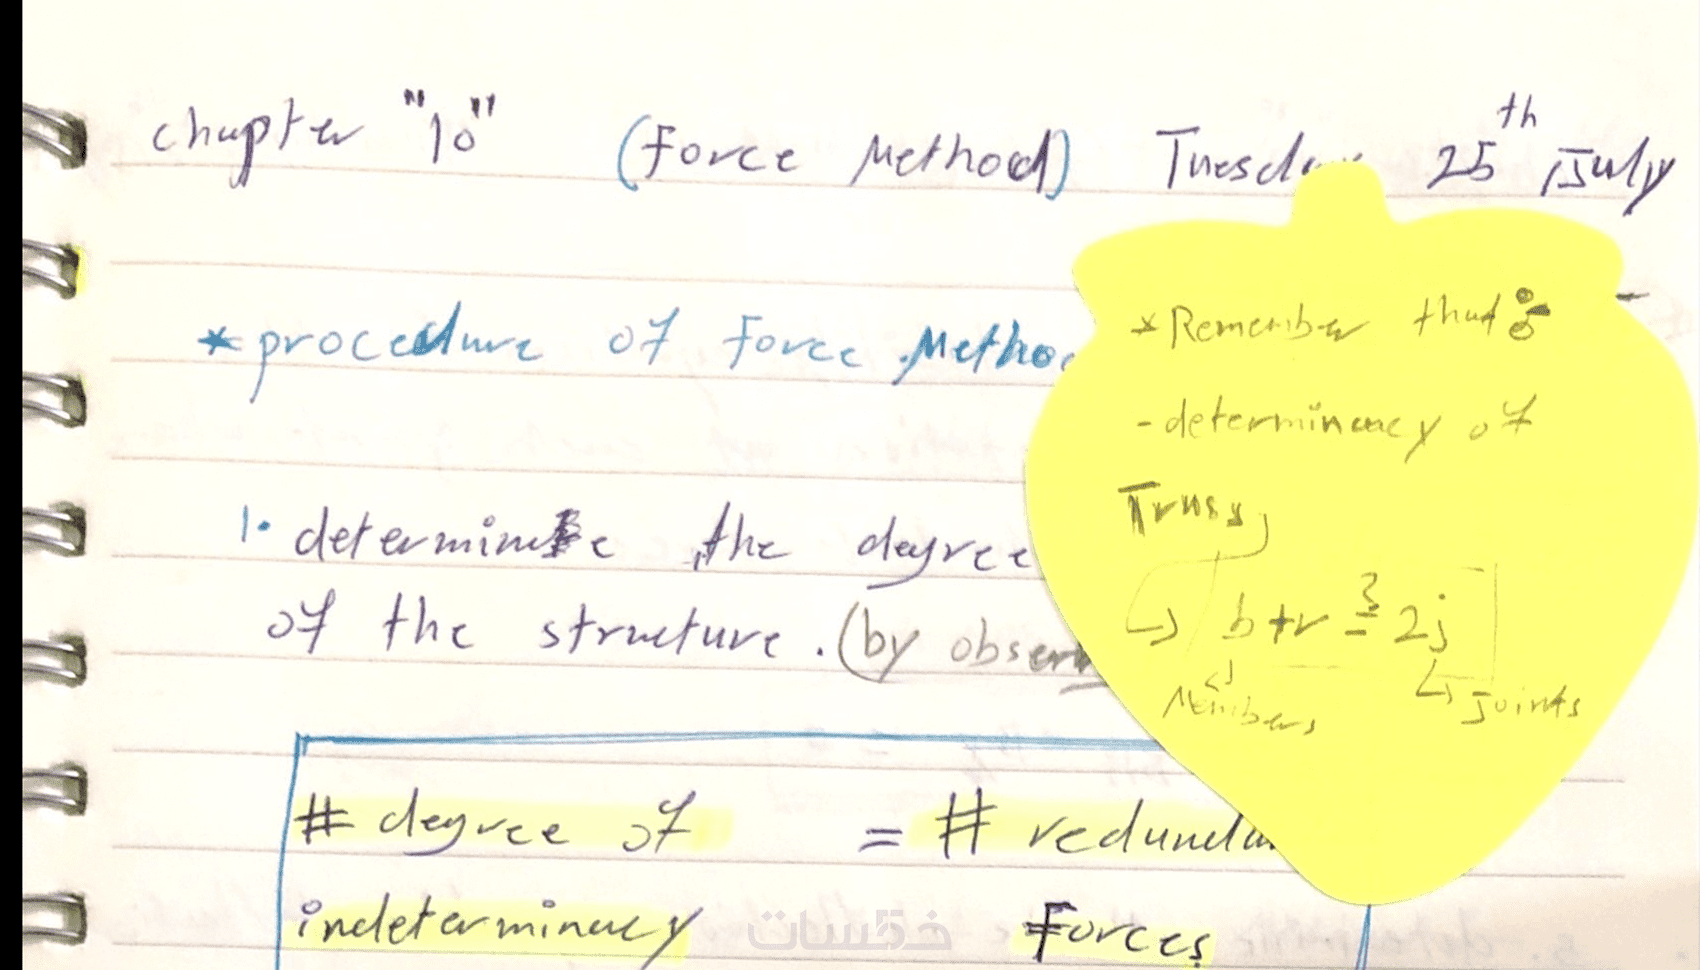 chapter "10" (Force Method) Tuesday 25th July
* procedure of Force Method
1. determine the degree
of the structure. (by obser
# degree of = # redundan
indeterminacy Forces
* Remember that:
- determinacy of
Truss
b+r = 2j
Members Joints
خمسات